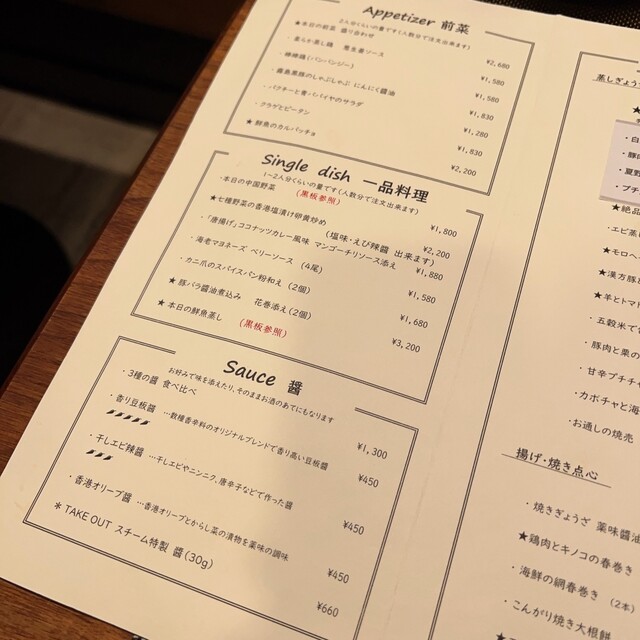 Appetizer 前菜
2人分くらいの量です(人数分で注文出来ます)
★本日の前菜 盛り合わせ ¥2,680
・柔らか蒸し鶏 葱生姜ソース ¥1,580
・棒棒鶏(バンバンジー) ¥1,580
・霧島黒豚のしゃぶしゃぶ にんにく醬油 ¥1,830
・パクチーと青パパイヤのサラダ ¥1,280
・クラゲとピータン ¥1,830
★鮮魚のカルパッチョ ¥2,200
Single dish 一品料理
1~2人分くらいの量です(人数分で注文出来ます)
・本日の中国野菜 (黒板参照) ¥1,800
★七種野菜の香港塩漬け卵黄炒め (塩味・えび辣醤 出来ます) ¥2,200
・「唐揚げ」ココナッツカレー風味 マンゴーチリソース添え ¥1,880
・海老マヨネーズ ベリーソース (4尾) ¥1,580
・カニ爪のスパイスパン粉和え (2個) ¥1,680
★豚バラ醤油煮込み 花巻添え(2個) ¥3,200
★本日の鮮魚蒸し (黒板参照)
Sauce 醤
お好みで味を添えたり、そのままお酒のあてにもなります
・3種の醤 食べ比べ ¥1,300
・香り豆板醤 …数種香辛料のオリジナルブレンドで香り高い豆板醤 ¥450
・干しエビ辣醤 …干しエビやニンニク、唐辛子などで作った醤 ¥450
・香港オリーブ醤 …香港オリーブとからし菜の漬物を薬味の調味 ¥450
＊TAKE OUT スチーム特製 醤(30g) ¥660
蒸しぎょう
★
・白
・豚
・夏野
・プチ
★絶品
・エビ蒸
★モロヘ
★漢方豚
★羊とトマト
・五穀米で
・豚肉と栗の
・甘辛プチチ
・カボチャと海
・お通しの焼売
揚げ・焼き点心
・焼きぎょうざ 薬味醤油
★鶏肉とキノコの春巻き
・海鮮の網春巻き (2本)
・こんがり焼き大根餅